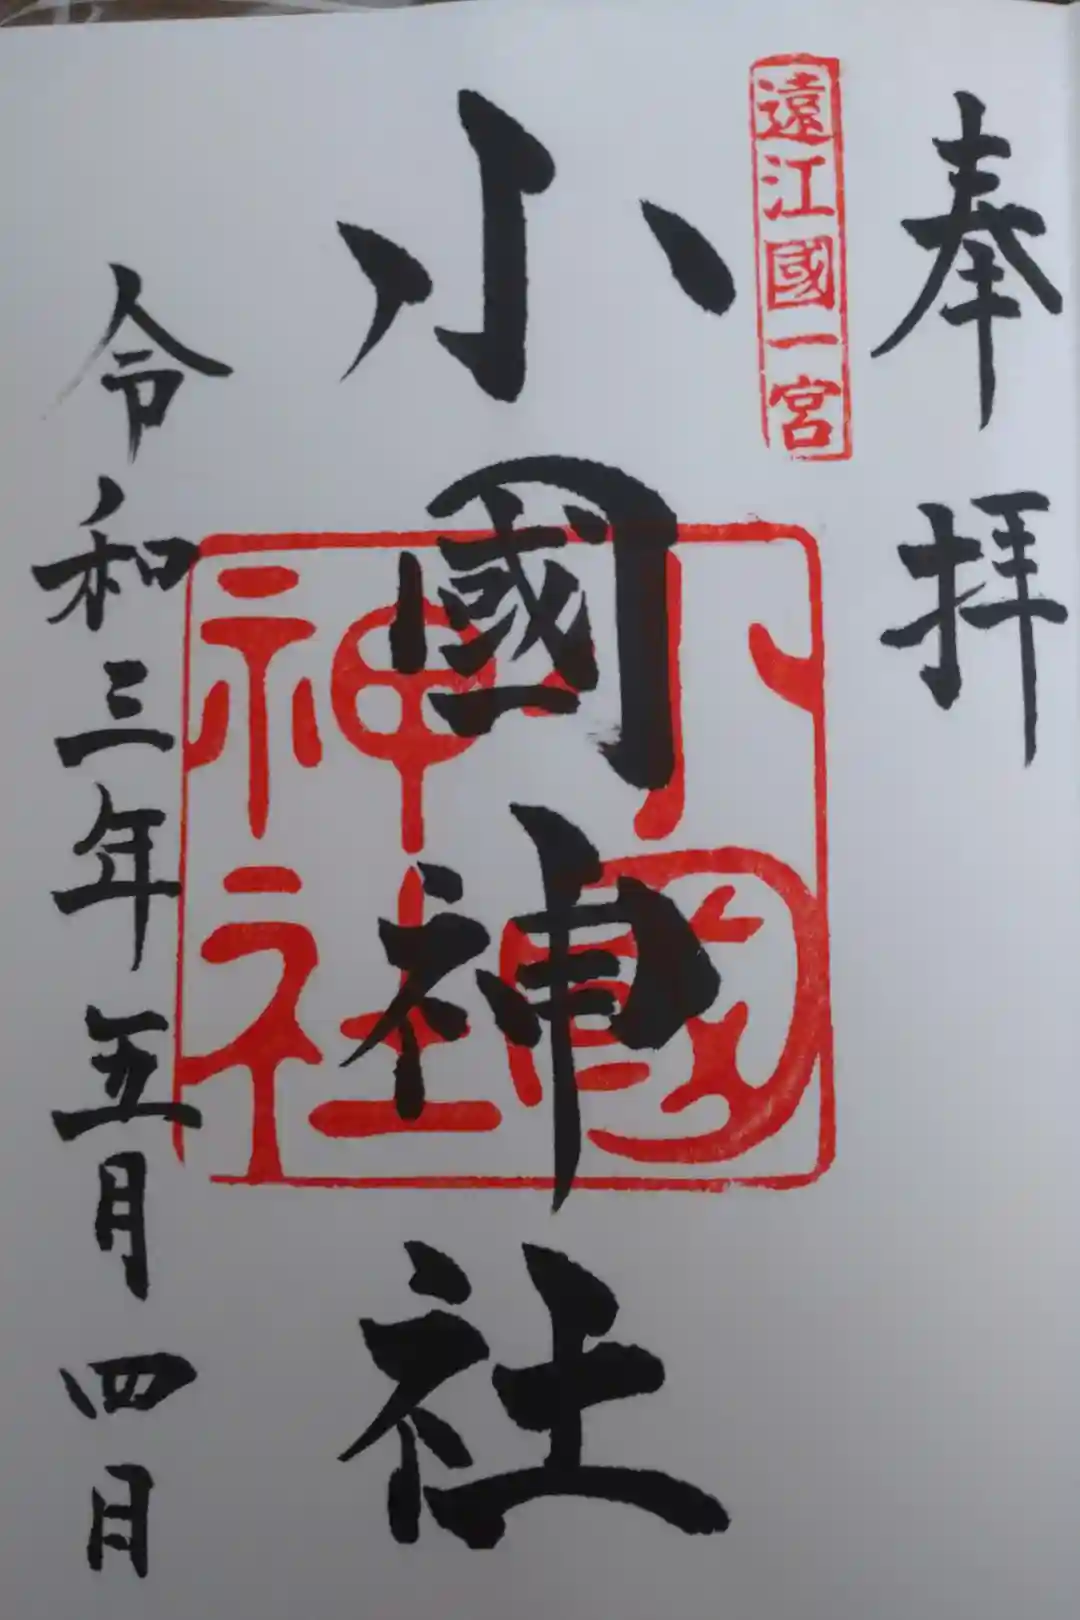 奉拝
遠江國一宮
小國神社
小國神社
令和三年五月四日